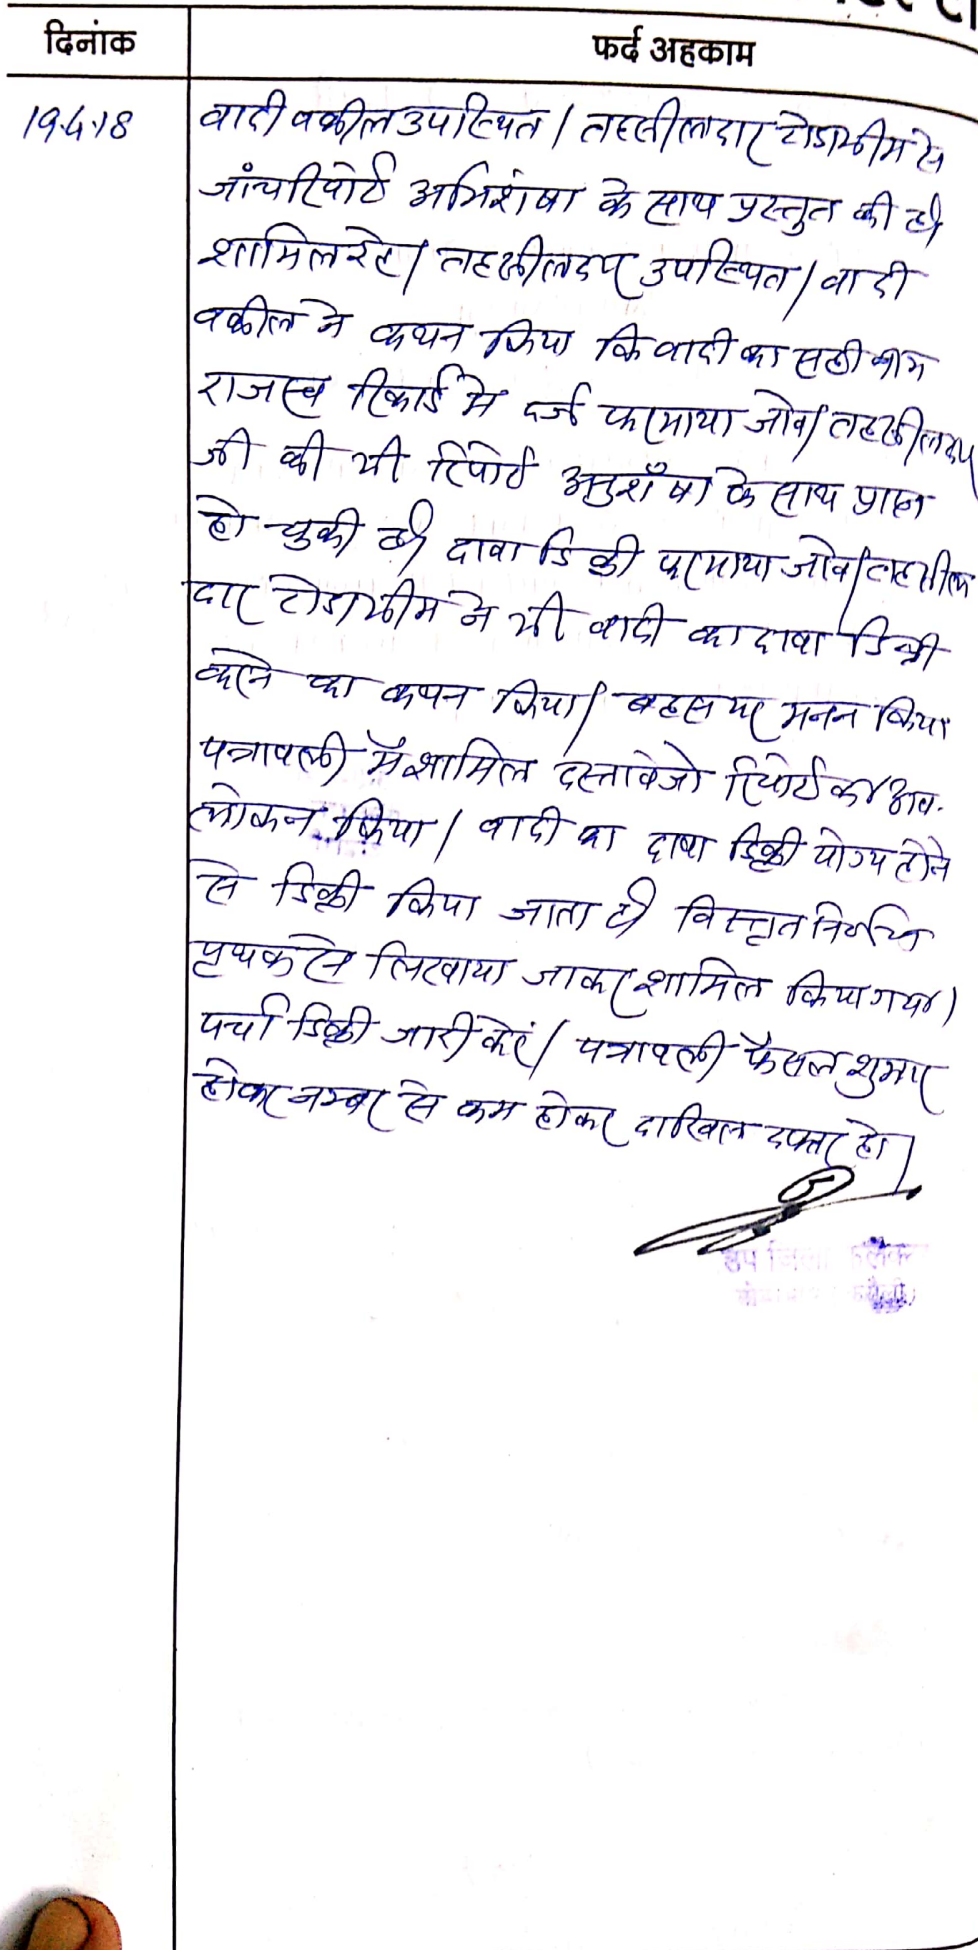 दिनांक
फर्द अहकाम
19.4.18
वादी वकील उपस्थित / तहसीलदार टोडाभीम से
जांच रिपोर्ट अभिशंषा के साथ प्रस्तुत की है।
शामिल रहे / तहसीलदार उपस्थित / वादी
वकील ने कथन किया कि वादी का सही नाम
राजस्व रिकार्ड में दर्ज फरमाया जावे / तहसीलदार
जी की भी रिपोर्ट अनुशँषा के साथ प्राप्त
हो चुकी है। दावा डिक्री फरमाया जावे / तहसील
दार टोडाभीम ने भी वादी का दावा डिक्री
करने का कथन किया / बहस पर मनन किया
पत्रावली में शामिल दस्तावेजो रिपोर्ट का अव-
लोकन किया / वादी का दावा डिक्री योग्य होने
से डिक्री किया जाता है। विस्तृत निर्णय
पृथक से लिखाया जाकर शामिल किया गया।
पर्चा डिक्री जारी करें / पत्रावली फैसल शुमार
होकर नम्बर से कम होकर दाखिल दफ्तर हो।
उप जिला कलेक्टर